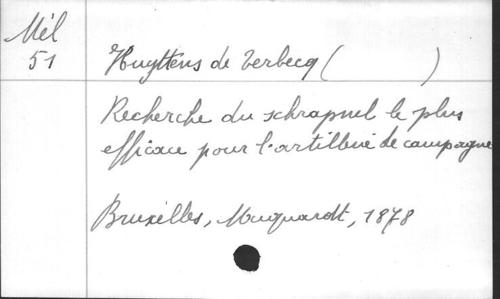 Mél
51
Huyttens de Terbecq ( )
Recherche du schrapnel le plus
efficace pour l'artillerie de campagne
Bruxelles, Muquardt, 1878